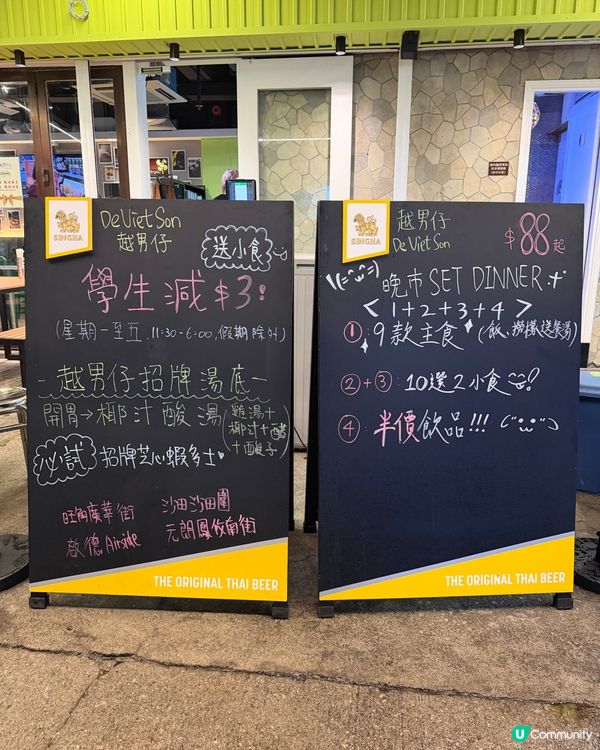 SINGHA
DeVietSon
越男仔
送小食
學生減$3!
(星期一至五 11:30-6:00, 假期除外)
- 越男仔招牌湯底 -
開胃→椰汁酸湯
(雞湯+
椰汁+
+酸子)
必試
招牌芝心蝦多士
旺角廣華街
沙田沙田圍
啟德 Airside
元朗鳳攸南街
THE ORIGINAL THAI BEER
SINGHA
越男仔
DeVietSon
$88起
晚市 SET DINNER
<1+2+3+4>
①: 9款主食 (飯、撈檬送餐湯)
②+③: 10選2小食
④: 半價飲品!!!
THE ORIGINAL THAI BEER
U Community